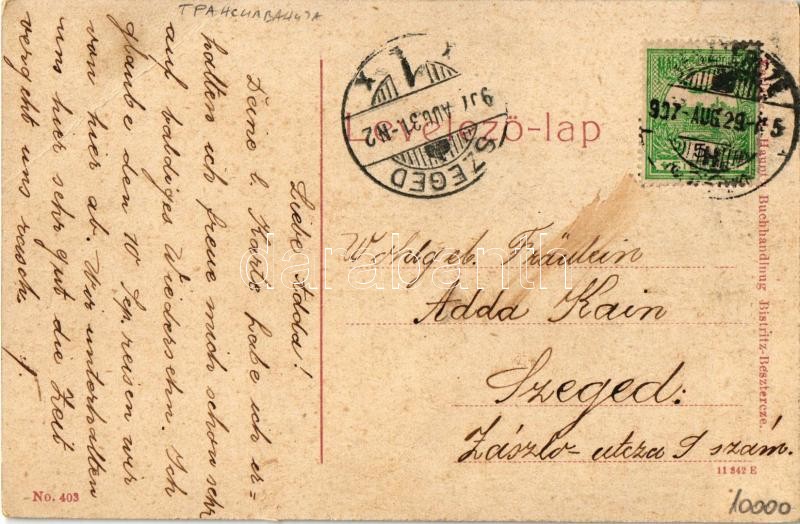 ТРАНСИЛВАНИЈА
Liebe Adda!
Deine l. Karte habe ich er=
halten ich freue mich schon sehr
auf baldiges Wiedersehn. Ich
glaube den 10 Sep. reisen wir
von hier ab. Wir unterhalten
uns hier sehr gut die Zeit
vergeht uns rasch.
Levelező-lap
SZEGED
907 AUG 31 N2
907 AUG 29
Wohlgeb. Fräulein
Adda Kain
Szeged:
László-utcza 9 szám.
Haupt Buchhandlung Bistritz-Besztercze.
No. 403
11 342 E
10000
darabanth